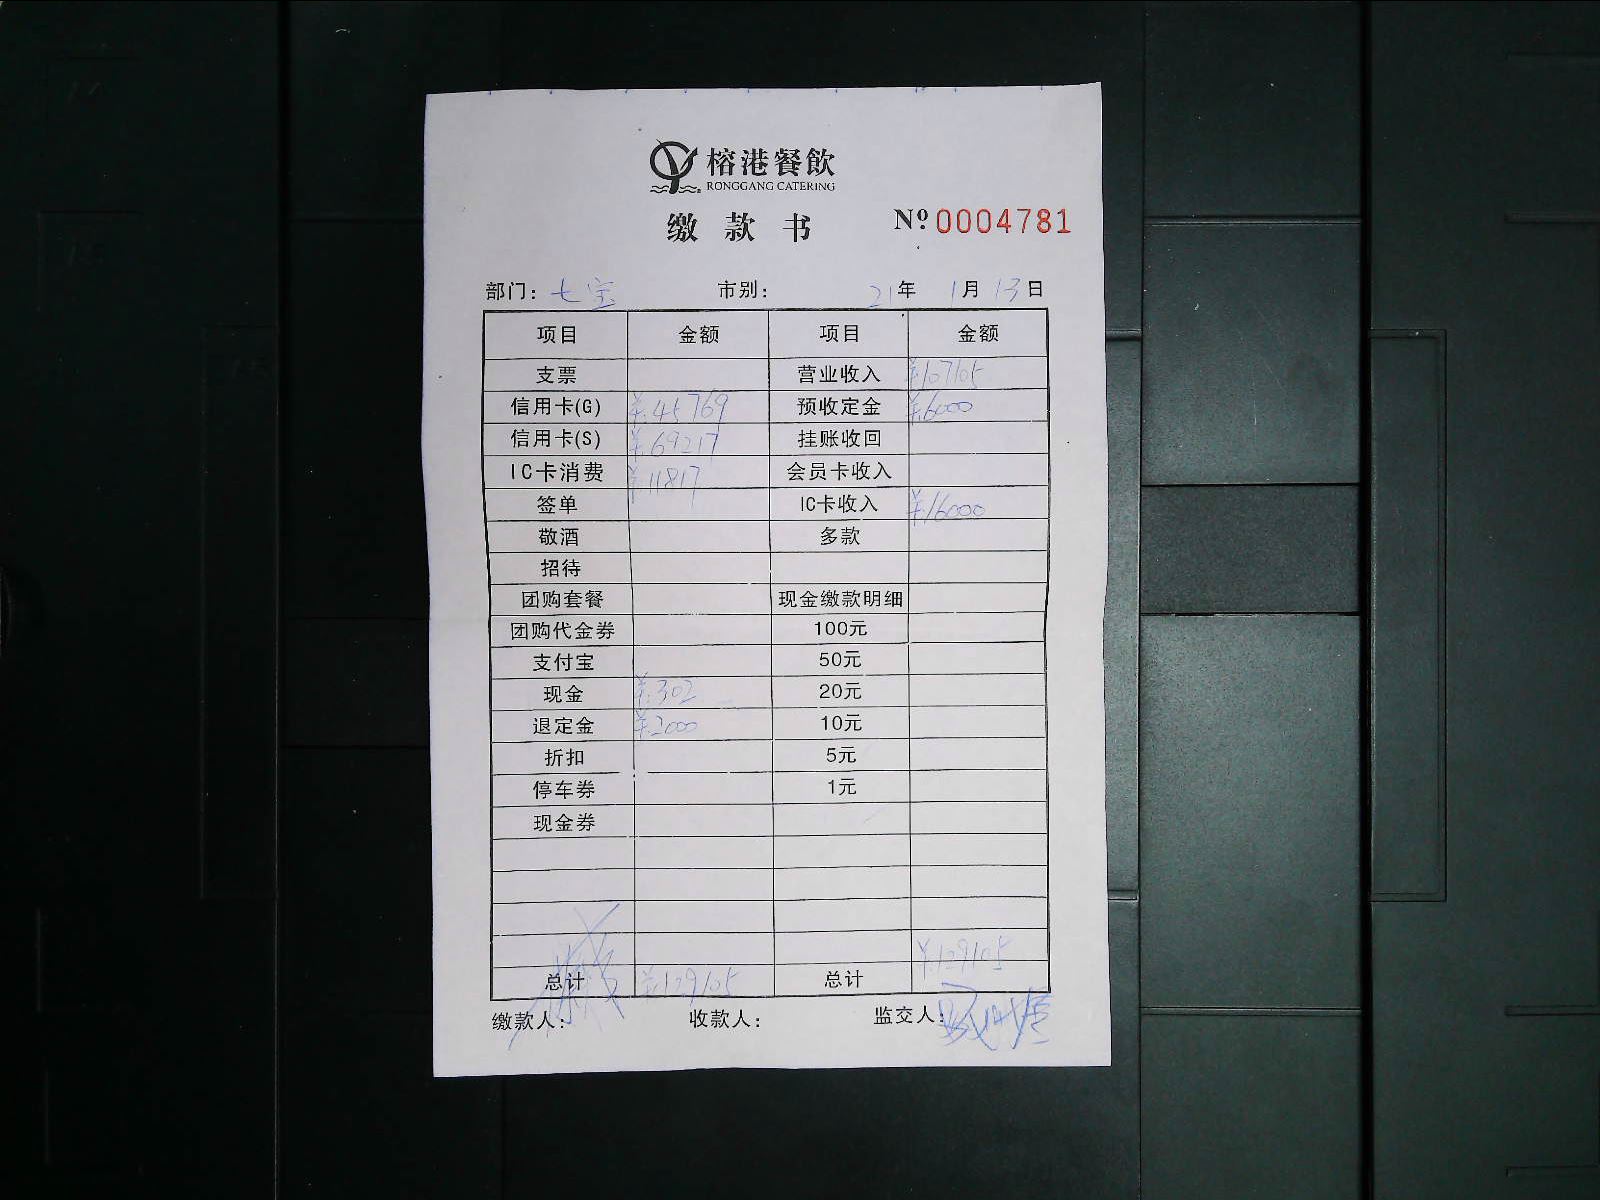 榕港餐飲
RONGGANG CATERING
缴款书 Nº 0004781
部门: 七宝 市别: 21年 1月 13日
项目 金额 项目 金额
支票 营业收入 ¥107105
信用卡(G) ¥45769 预收定金 ¥6000
信用卡(S) ¥69217 挂账收回
IC卡消费 ¥11817 会员卡收入
签单 IC卡收入 ¥16000
敬酒 多款
招待
团购套餐 现金缴款明细
团购代金券 100元
支付宝 50元
现金 ¥302 20元
退定金 ¥2000 10元
折扣 5元
停车券 1元
现金券
总计 ¥129105 总计 ¥129105
缴款人: 收款人: 监交人: